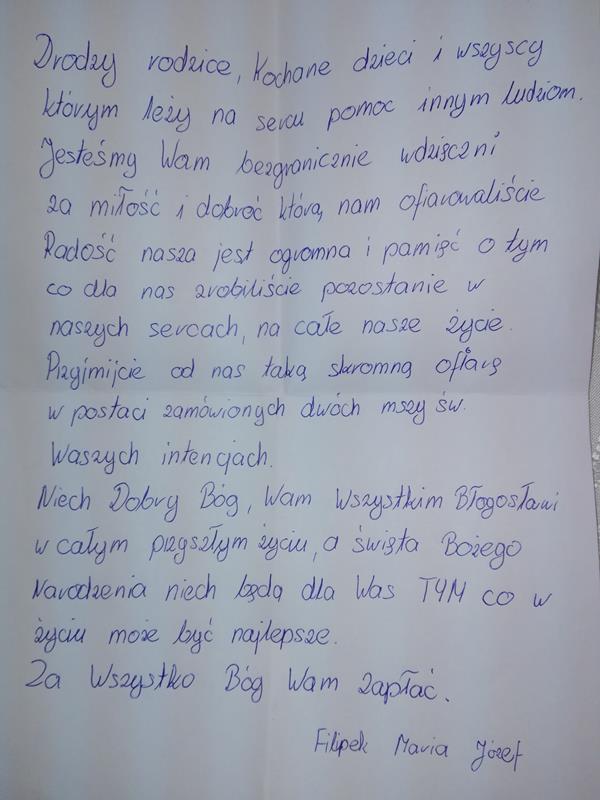 Drodzy rodzice, Kochane dzieci i wszyscy
którym leży na sercu pomoc innym ludziom.
Jesteśmy Wam bezgranicznie wdzięczni
za miłość i dobroć którą nam ofiarowaliście
Radość nasza jest ogromna i pamięć o tym
co dla nas zrobiliście pozostanie w
naszych sercach, na całe nasze życie.
Przyjmijcie od nas taką skromną ofiarę
w postaci zamówionych dwóch mszy św.
Waszych intencjach.
Niech Dobry Bóg, Wam Wszystkim Błogosławi
w całym przyszłym życiu, a święta Bożego
Narodzenia niech będą dla Was TYM co w
życiu może być najlepsze.
Za Wszystko Bóg Wam zapłać.
Filipek Maria Józef